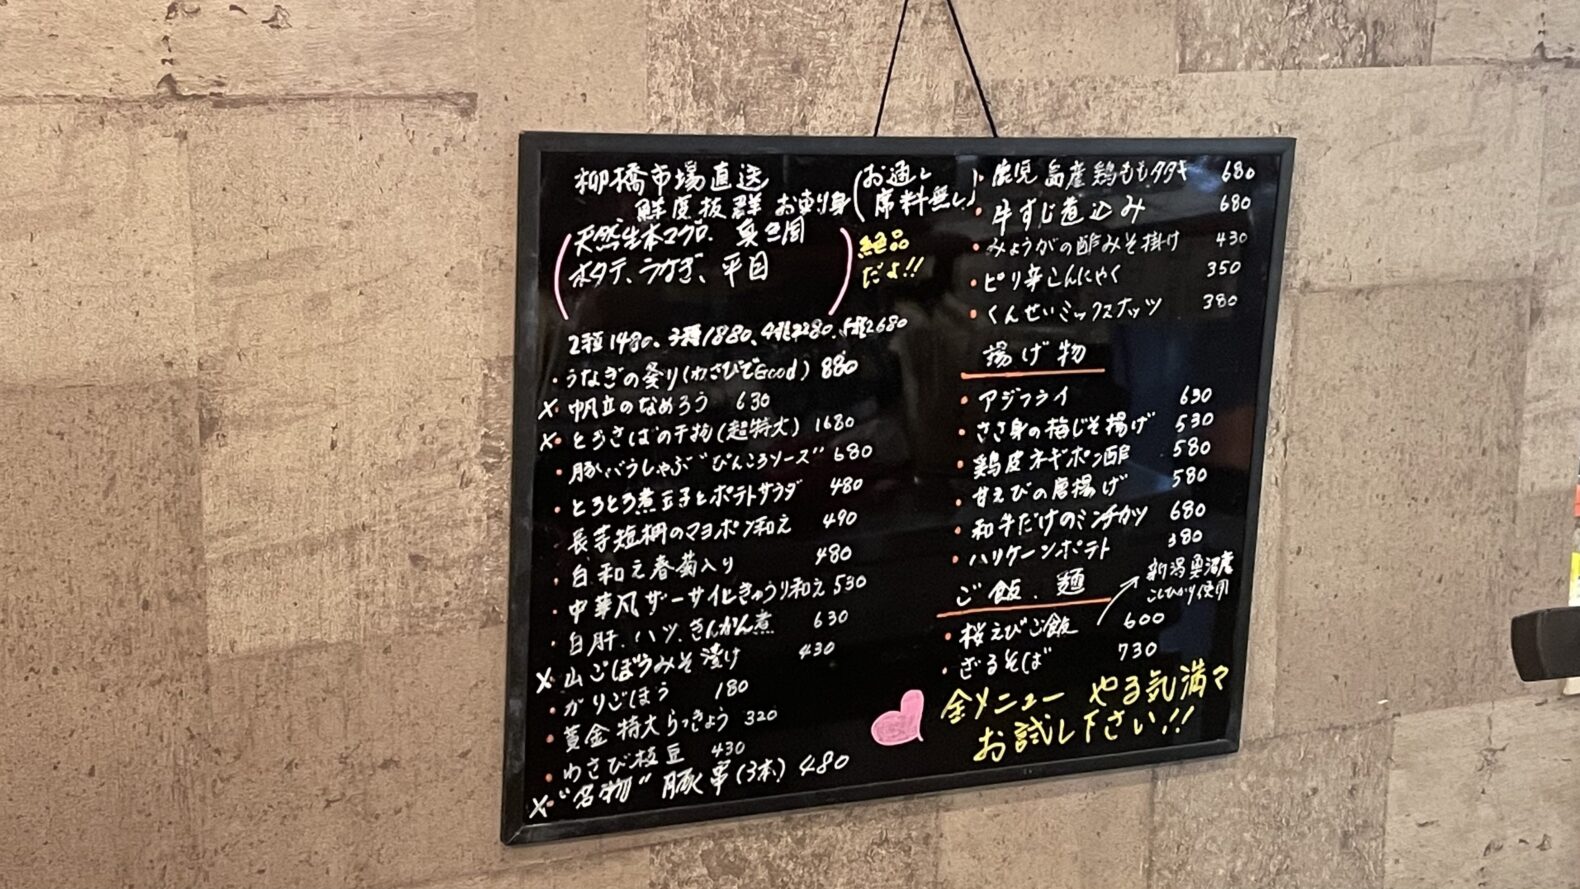 柳橋市場直送
鮮度抜群 お刺身
(お通し
席料無し)
天然生本マグロ、真烏賊
ホタテ、うなぎ、平目
絶品
だよ!!
2種1480、3種1880、4種2280、5種2680
・うなぎの炙り(わさびでGood) 880
×・帆立のなめろう 630
×・とろさばの干物(超特大) 1680
・豚バラしゃぶ"ぴんころソース" 680
・とろとろ煮玉子とポテトサラダ 480
・長芋短冊のマヨポン和え 490
・白和え春菊入り 480
・中華風ザーサイときゅうり和え 530
・白肝、ハツ、きんかん煮 630
×・山ごぼうみそ漬け 430
・がりごぼう 180
・黄金特大らっきょう 320
・わさび枝豆 430
×・"名物"豚串(3本) 480
・鹿児島産鶏ももタタキ 680
・牛すじ煮込み 680
・みょうがの酢みそ掛け 430
・ピリ辛こんにゃく 350
・くんせいミックスナッツ 380
揚げ物
・アジフライ 630
・ささ身の梅じそ揚げ 530
・鶏皮ネギポン酢 580
・甘えびの唐揚げ 580
・和牛だけのミンチカツ 680
・ハリケーンポテト 380
ご飯、麺
新潟奥沼産
こしひかり使用
・桜えびご飯 600
・ざるそば 730
全メニュー やる気満々
お試し下さい!!